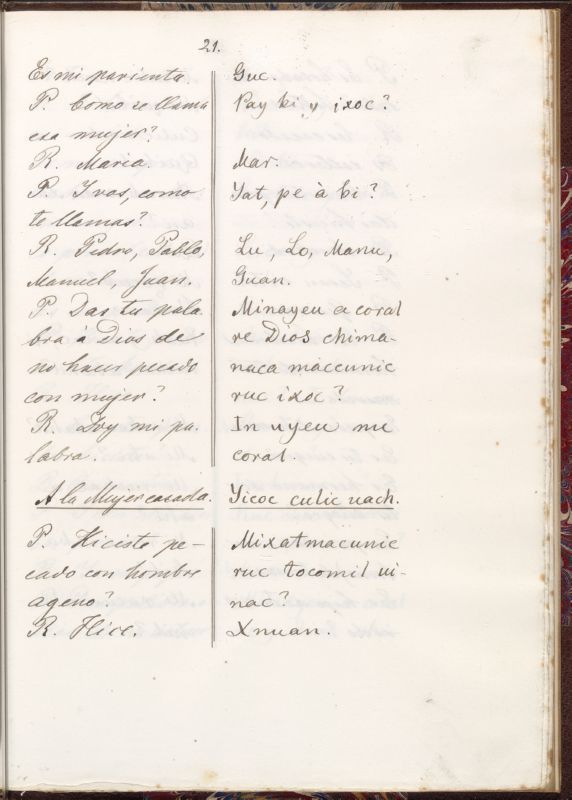 21.
Es mi parienta. Guc.
P. Como se llama Pay bi y ixoc?
esa mujer?
R. Maria. Mar.
P. I vos, como Yat, pe à bi?
te llamas?
R. Pedro, Pablo, Lu, Lo, Manu,
Manuel, Juan. Guan.
P. Das tu pala Minayeu a coral
bra á Dios de re Dios chima-
no hacer pecado naca maccunic
con mujer? ruc ixoc?
R. Doy mi pa- In uyeu nu
labra. coral
A la Mujer casada. Yicoc culic uach.
P. Hiciste pe- Mixatmacunic
cado con hombre ruc tocomil ui-
ageno? nac?
R. Hice. Xnuan.